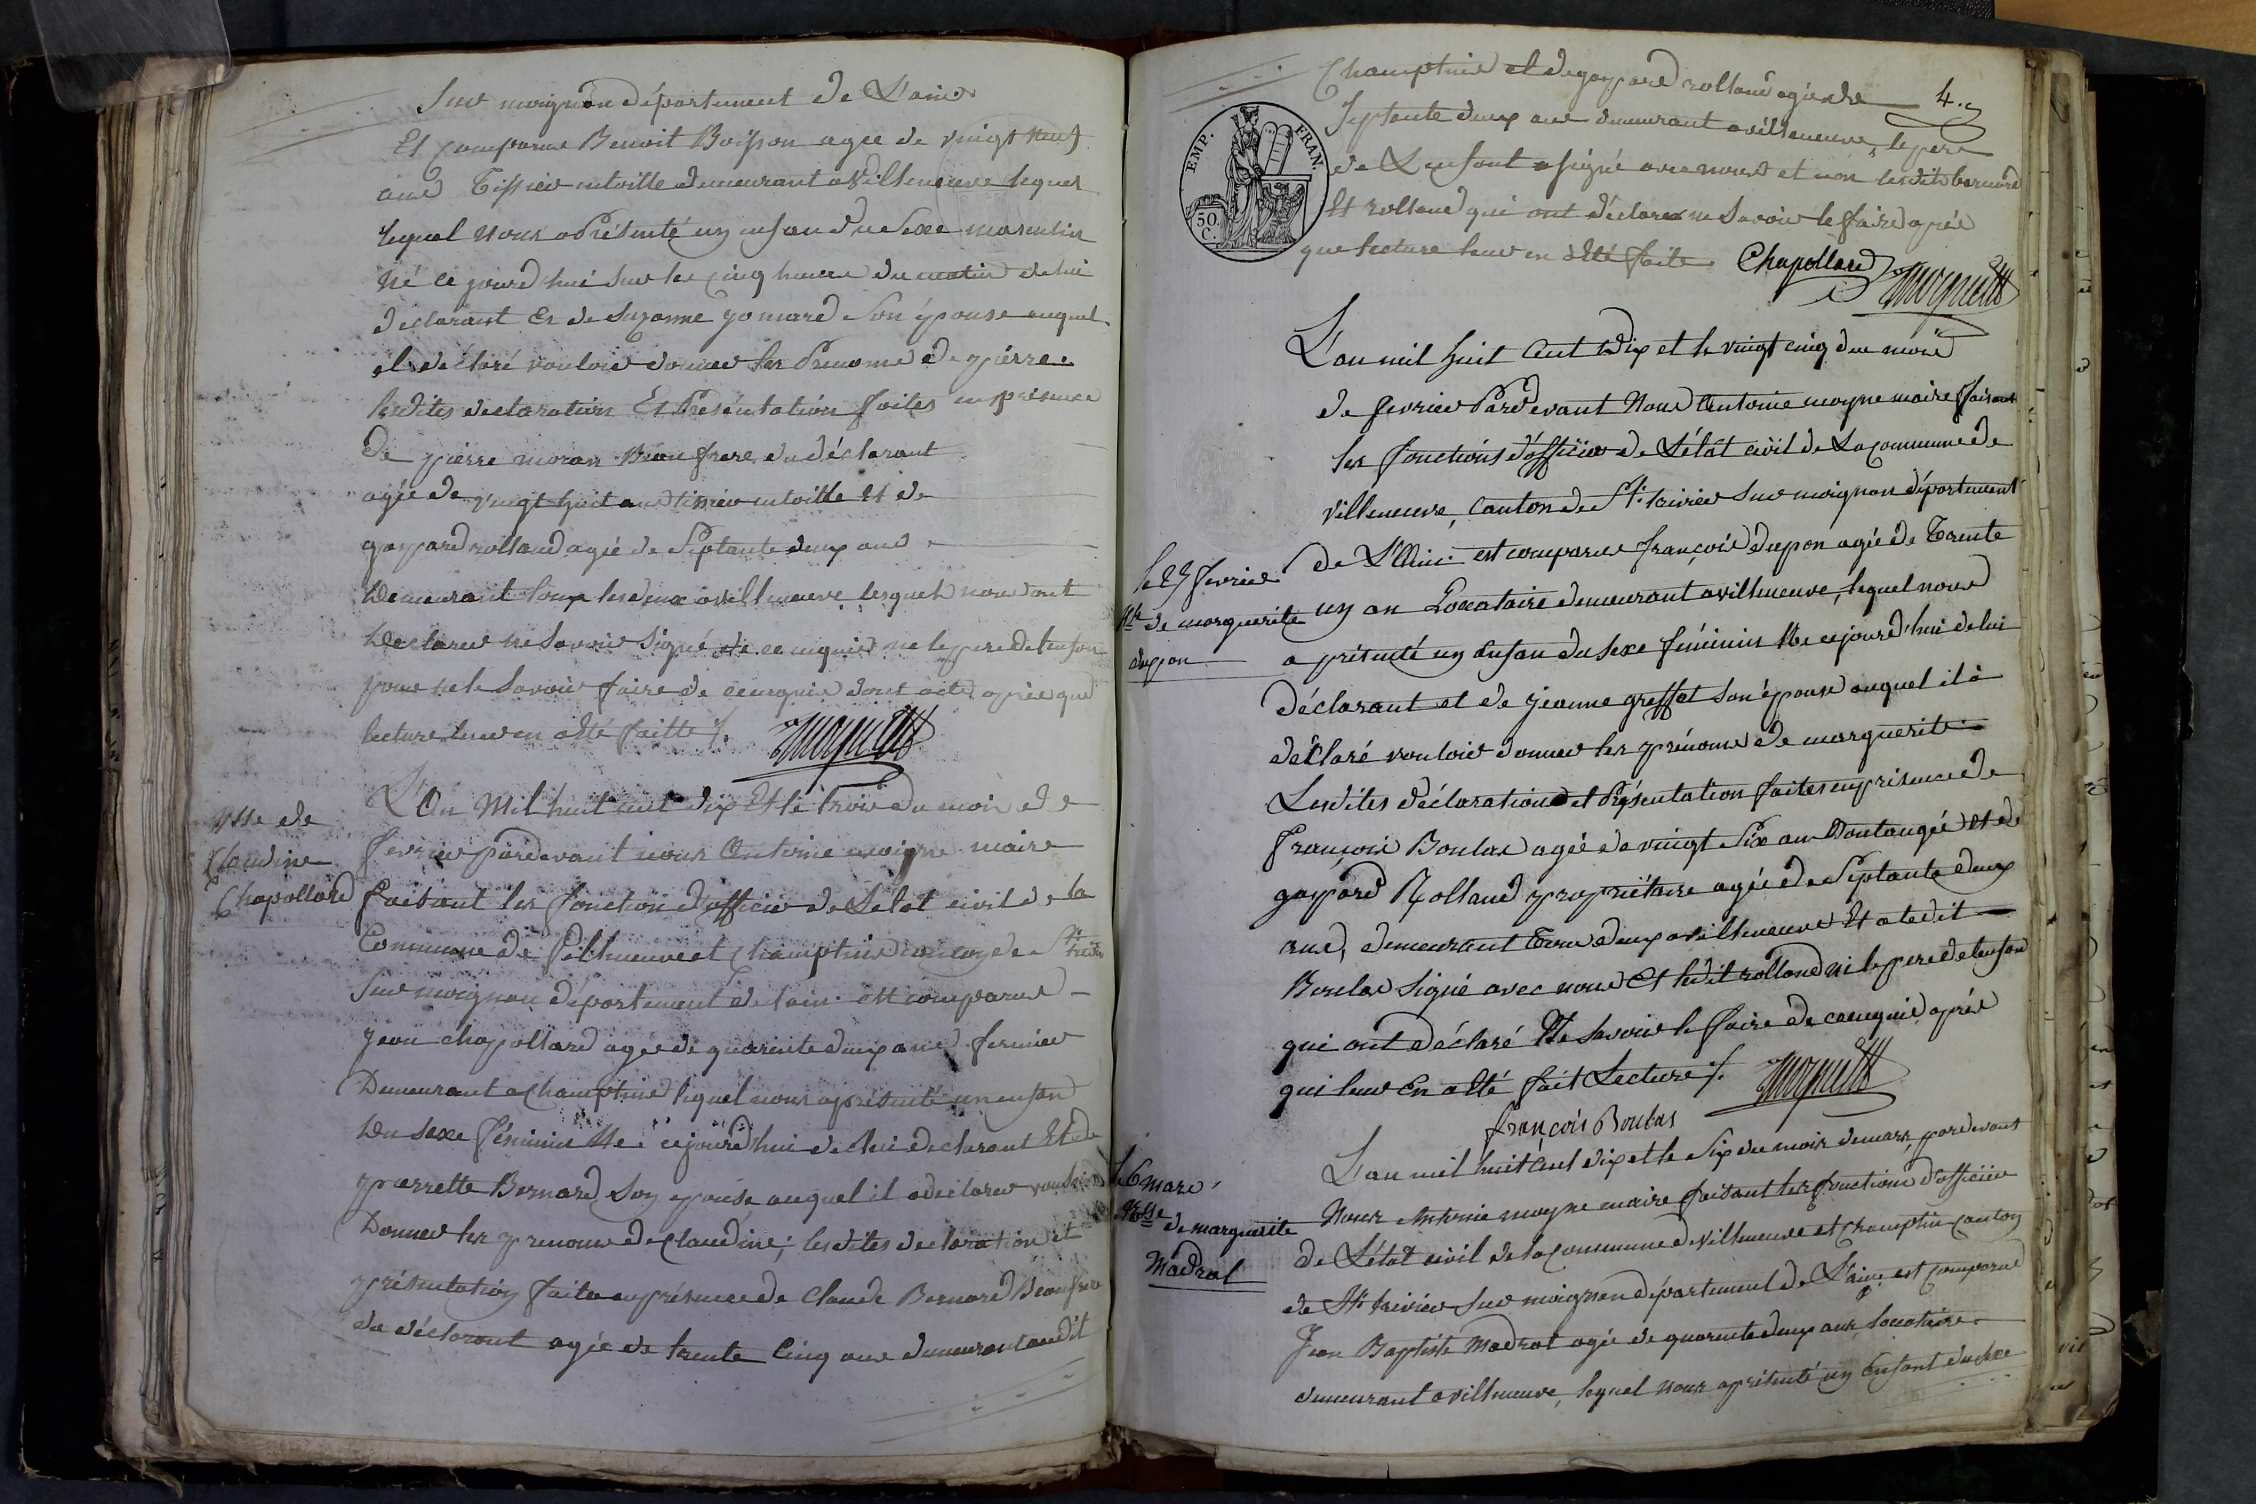 Sur moignan département de L'ain
Et comparue Benoit Boisson agee de vingt neuf
ans Tissier en toille demeurant a Villeneuve lequel
lequel nous a Présenté un enfan du Sexe masculin
Né ce jourd'hui sur les cinq heures du matin de lui
déclarant et de Suzanne gomard son épouse auquel
il a declaré vouloir donner les Prenoms de pierre
lesdites declaration Et Présentation faites en présence
de pierre moran Beau frere du déclarant
agée de vingt huit ans tissier en toille et de
gaspard rolland agée de Septante deux ans
demeurant tous les deux a villeneuve lesquels nous ont
declarer ne Savoir Signé de ce enquis ne le pere de l'enfan
pour ne le Savoir faire de ce enquis dont acte après que
lecture leur en a Eté faitte /.
Nsse de
Claudine
Chapollard
L'An Mil huit cent dix Et le trois du mois de
fevrier pardevant nous Antoine moigne maire
faisant les fonction d'officier de L'etat civil de la
Commune de Villeneuve et Champtein canton de St. trivier
Sur moignan département de l'ain est comparue
Jean chapollard agee de quarente deux ans fermier
Demeurant a Champtein lequel nous a présenté un enfan
du sexe féminin Née cejourd'hui de lui declarant Et de
pierrette Bernard son epouse auquel il a déclarer vouloir
Donner les prenoms de Claudine; lesdites declaration et
présentation faites en présence de Claude Bernard Beau frere
du déclarant agée de trente Cinq ans demeurant audit
Champtein et de gaspard rolland agée de
4.
Septante deux ans demeurant a villeneuve, le pere
de L'enfant a signé avec nous et non lesdits bernard
Et rolland qui ont déclarer ne Savoir le faire après
que lecture leur en a Eté faite. Chapollard
EMP. FRAN.
50. C.
L'an mil huit cent dix et le vingt cinq du mois
de fevrier Pardevant Nous Antoine moyne maire faisant
les fonctions d'officier de L'état civil de La commune de
villeneuve, canton de St. trivier Sur moignan département
le 25 fevrier
Nce de marguerite
dupon
de L'Ain est comparue françois dupon agée de Trente
un an Locataire demeurant a villeneuve, lequel nous
a présenté un enfan du sexe féminin Née cejourd'hui de lui
déclarant et de jeanne greffet son épouse auquel il a
déclaré vouloir donner les prénoms de marguerite
Lesdites déclarations et Présentation faites en présence de
françois Boulas agée de vingt Six ans Boulangée et de
gaspard Rolland propriétaire agée de Septante deux
ans, demeurant tous deux a villeneuve Et a ledit
Boulas Signé avec nous Et ledit rolland ni le pere de l'enfan
qui ont déclaré Ne Savoir le faire de ce enquis après
qui leur En a Eté fait Lecture /.
françois Boulas
le 6 mars
Nsse de marguerite
Madral
L'an mil huit cent dix et le Six du mois de mars, pardevant
Nous Antoine moyne maire faisant les fonctions d'officier
de L'état civil de la Commune de Villeneuve et Champtein Canton
de St. trivier Sur moignan département de L'ain est comparue
Jean Baptiste Madral agée de quarente deux ans, locataire
demeurant a villeneuve, lequel nous a présenté un Enfant du sexe